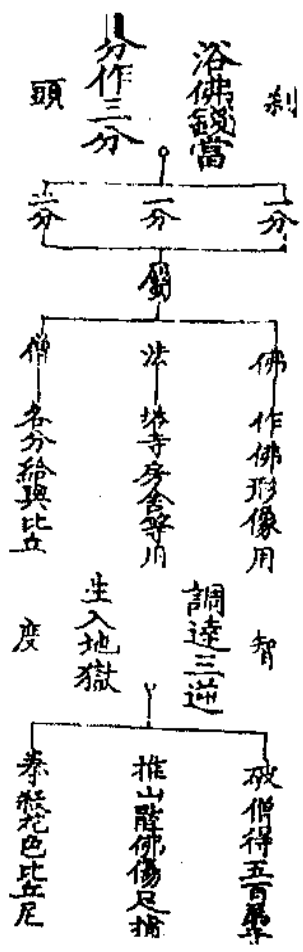 刹頭
浴佛錢當
分作三分
一分
一分
二分
屬
佛 作佛形像用
法 塔寺房舍等用
僧 各分給與比丘
智度
調達三逆
生入地獄
破僧得五百弟子
推山壓佛傷足指
拳殺花色比丘尼